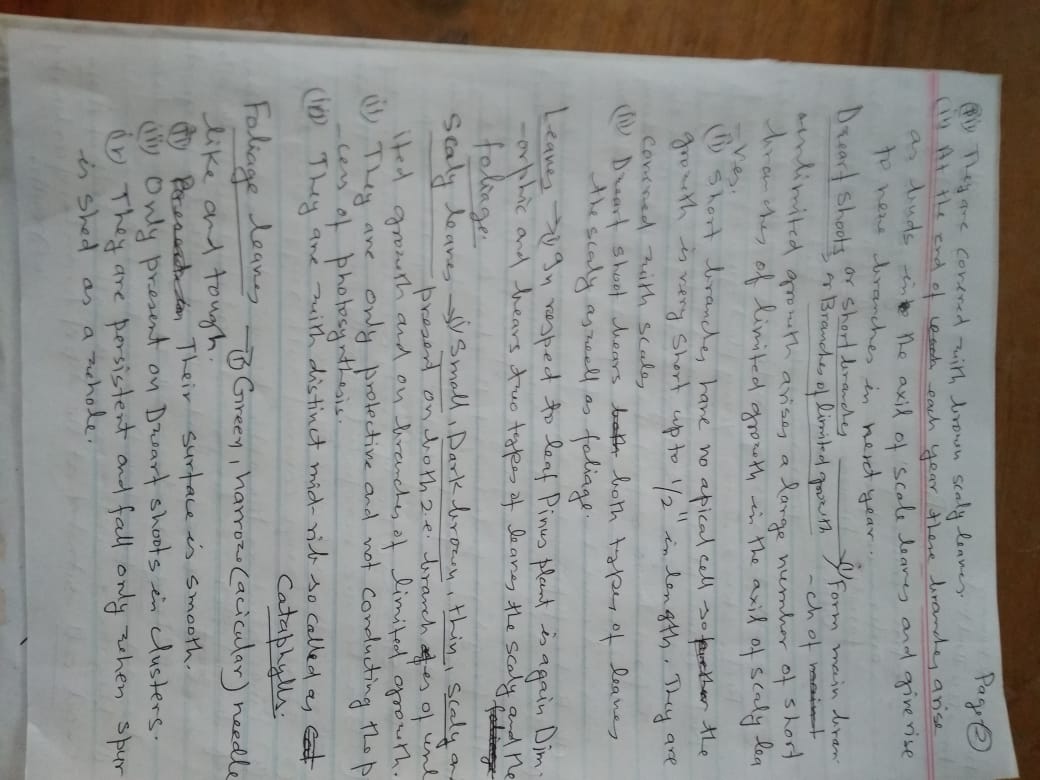 Page (2)
(iii) They are covered with brown scaly leaves.
(iv) At the end of each year there branches arise
as buds in the axil of scale leaves and give rise
to new branches in next year...
Dwarf shoots or short branches → (i) Form main bran
or Branches of limited growth -ch of
unlimited growth arises a large number of short
branches, of limited growth in the axil of scaly lea
-ves.
(ii) Short branches have no apical cell so the
growth is very short up to 1/2" in length. They are
covered with scales
(iii) Dwarf shoot bears both types of leaves,
the scaly as well as foliage.
Leaves → (i) In respect to leaf Pinus plant is again Dim-
-orphic and bears two types of leaves the scaly and the
foliage.
Scaly leaves → (i) Small, Dark brown, thin, scaly an
present on both i.e. branches of unl
ited growth and on branches of limited growth.
(ii) They are only protective and not conducting the p
-cess of photosynthesis.
(iii) They are with distinct mid-rib so called as
Cataphylls.
Foliage leaves → (i) Green, narrow (acicular) needle
like and tough.
(ii) Their surface is smooth.
(iii) Only present on Dwarf shoots in clusters.
(iv) They are persistent and fall only when spur
is shed as a whole.